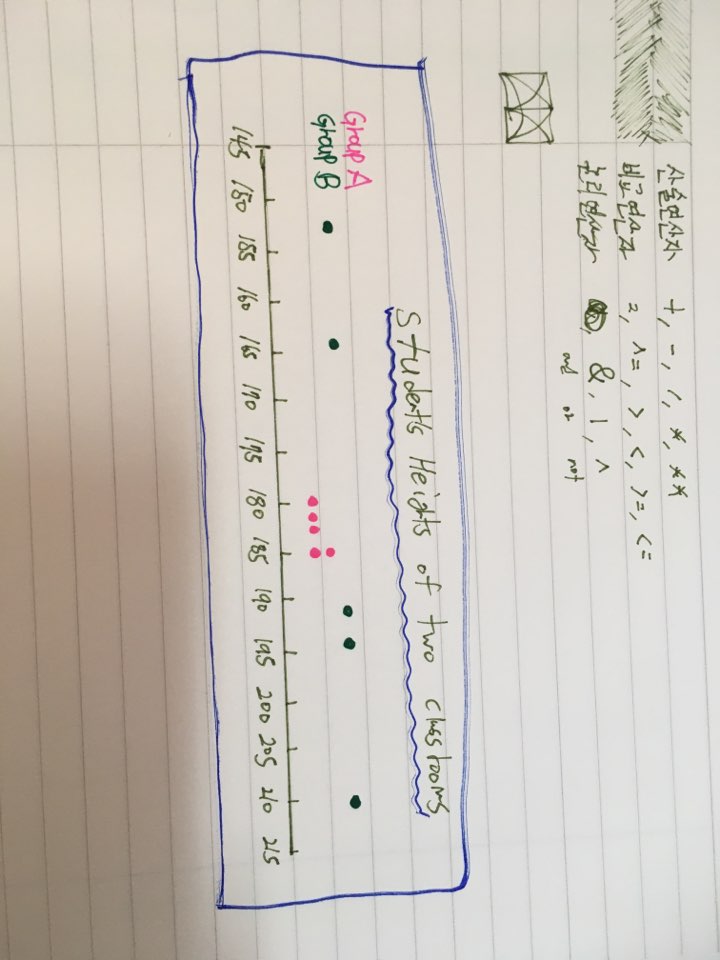 산술연산자 +, -, /, *, **
비교연산자 =, ^=, >, <, >=, <=
논리연산자 &, |, ^
and or not
Student's Heights of two classrooms
Group A
Group B
145 150 155 160 165 170 175 180 185 190 195 200 205 210 215